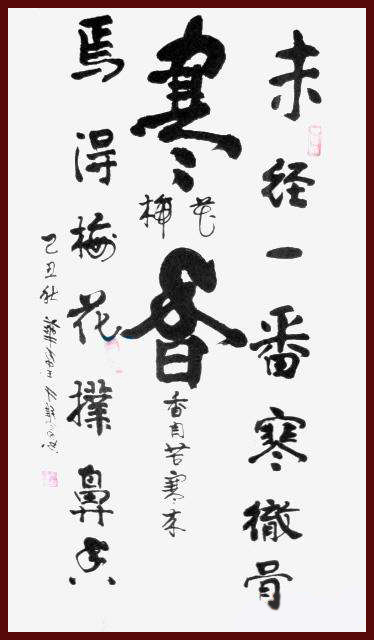 未経一番寒徹骨
寒
梅花
香
香自苦寒来
焉得梅花撲鼻香
己丑秋